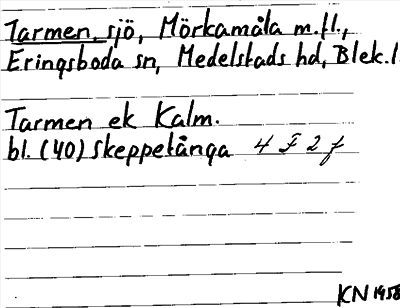 Tarmen, sjö, Mörkamåla m.fl.,
Eringsboda sn, Medelstads hd, Blek.l.
Tarmen ek Kalm.
bl. (40) Skeppetånga 4 F 2 f
KN 1958